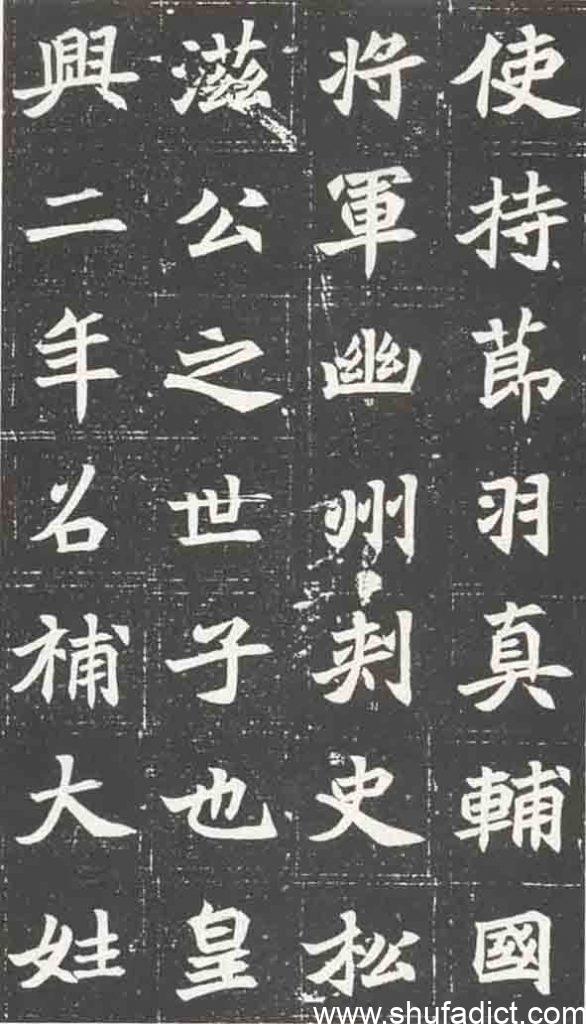 使持莭羽真輔國
将軍幽州刾史松
滋公之世子也皇
興二年召補大姓
www.shufadict.com